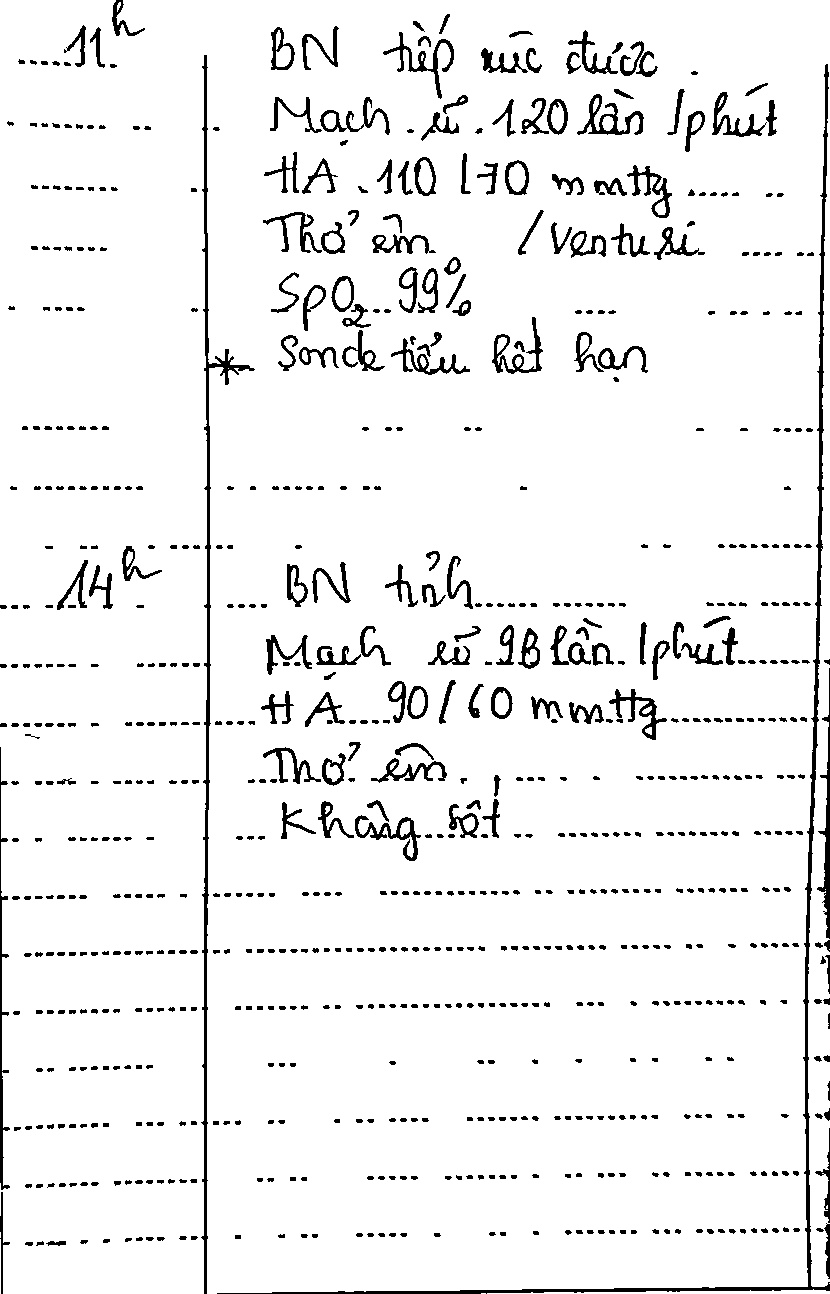 11h
BN tiếp xúc được.
Mạch rõ 120 lần/phút
HA 110/70 mmHg
Thở êm /Venturi
SpO2 99%
* Sonde tiểu hết hạn
14h
BN tỉnh
Mạch rõ 98 lần/phút
HA 90/60 mmHg
Thở êm
Không sốt